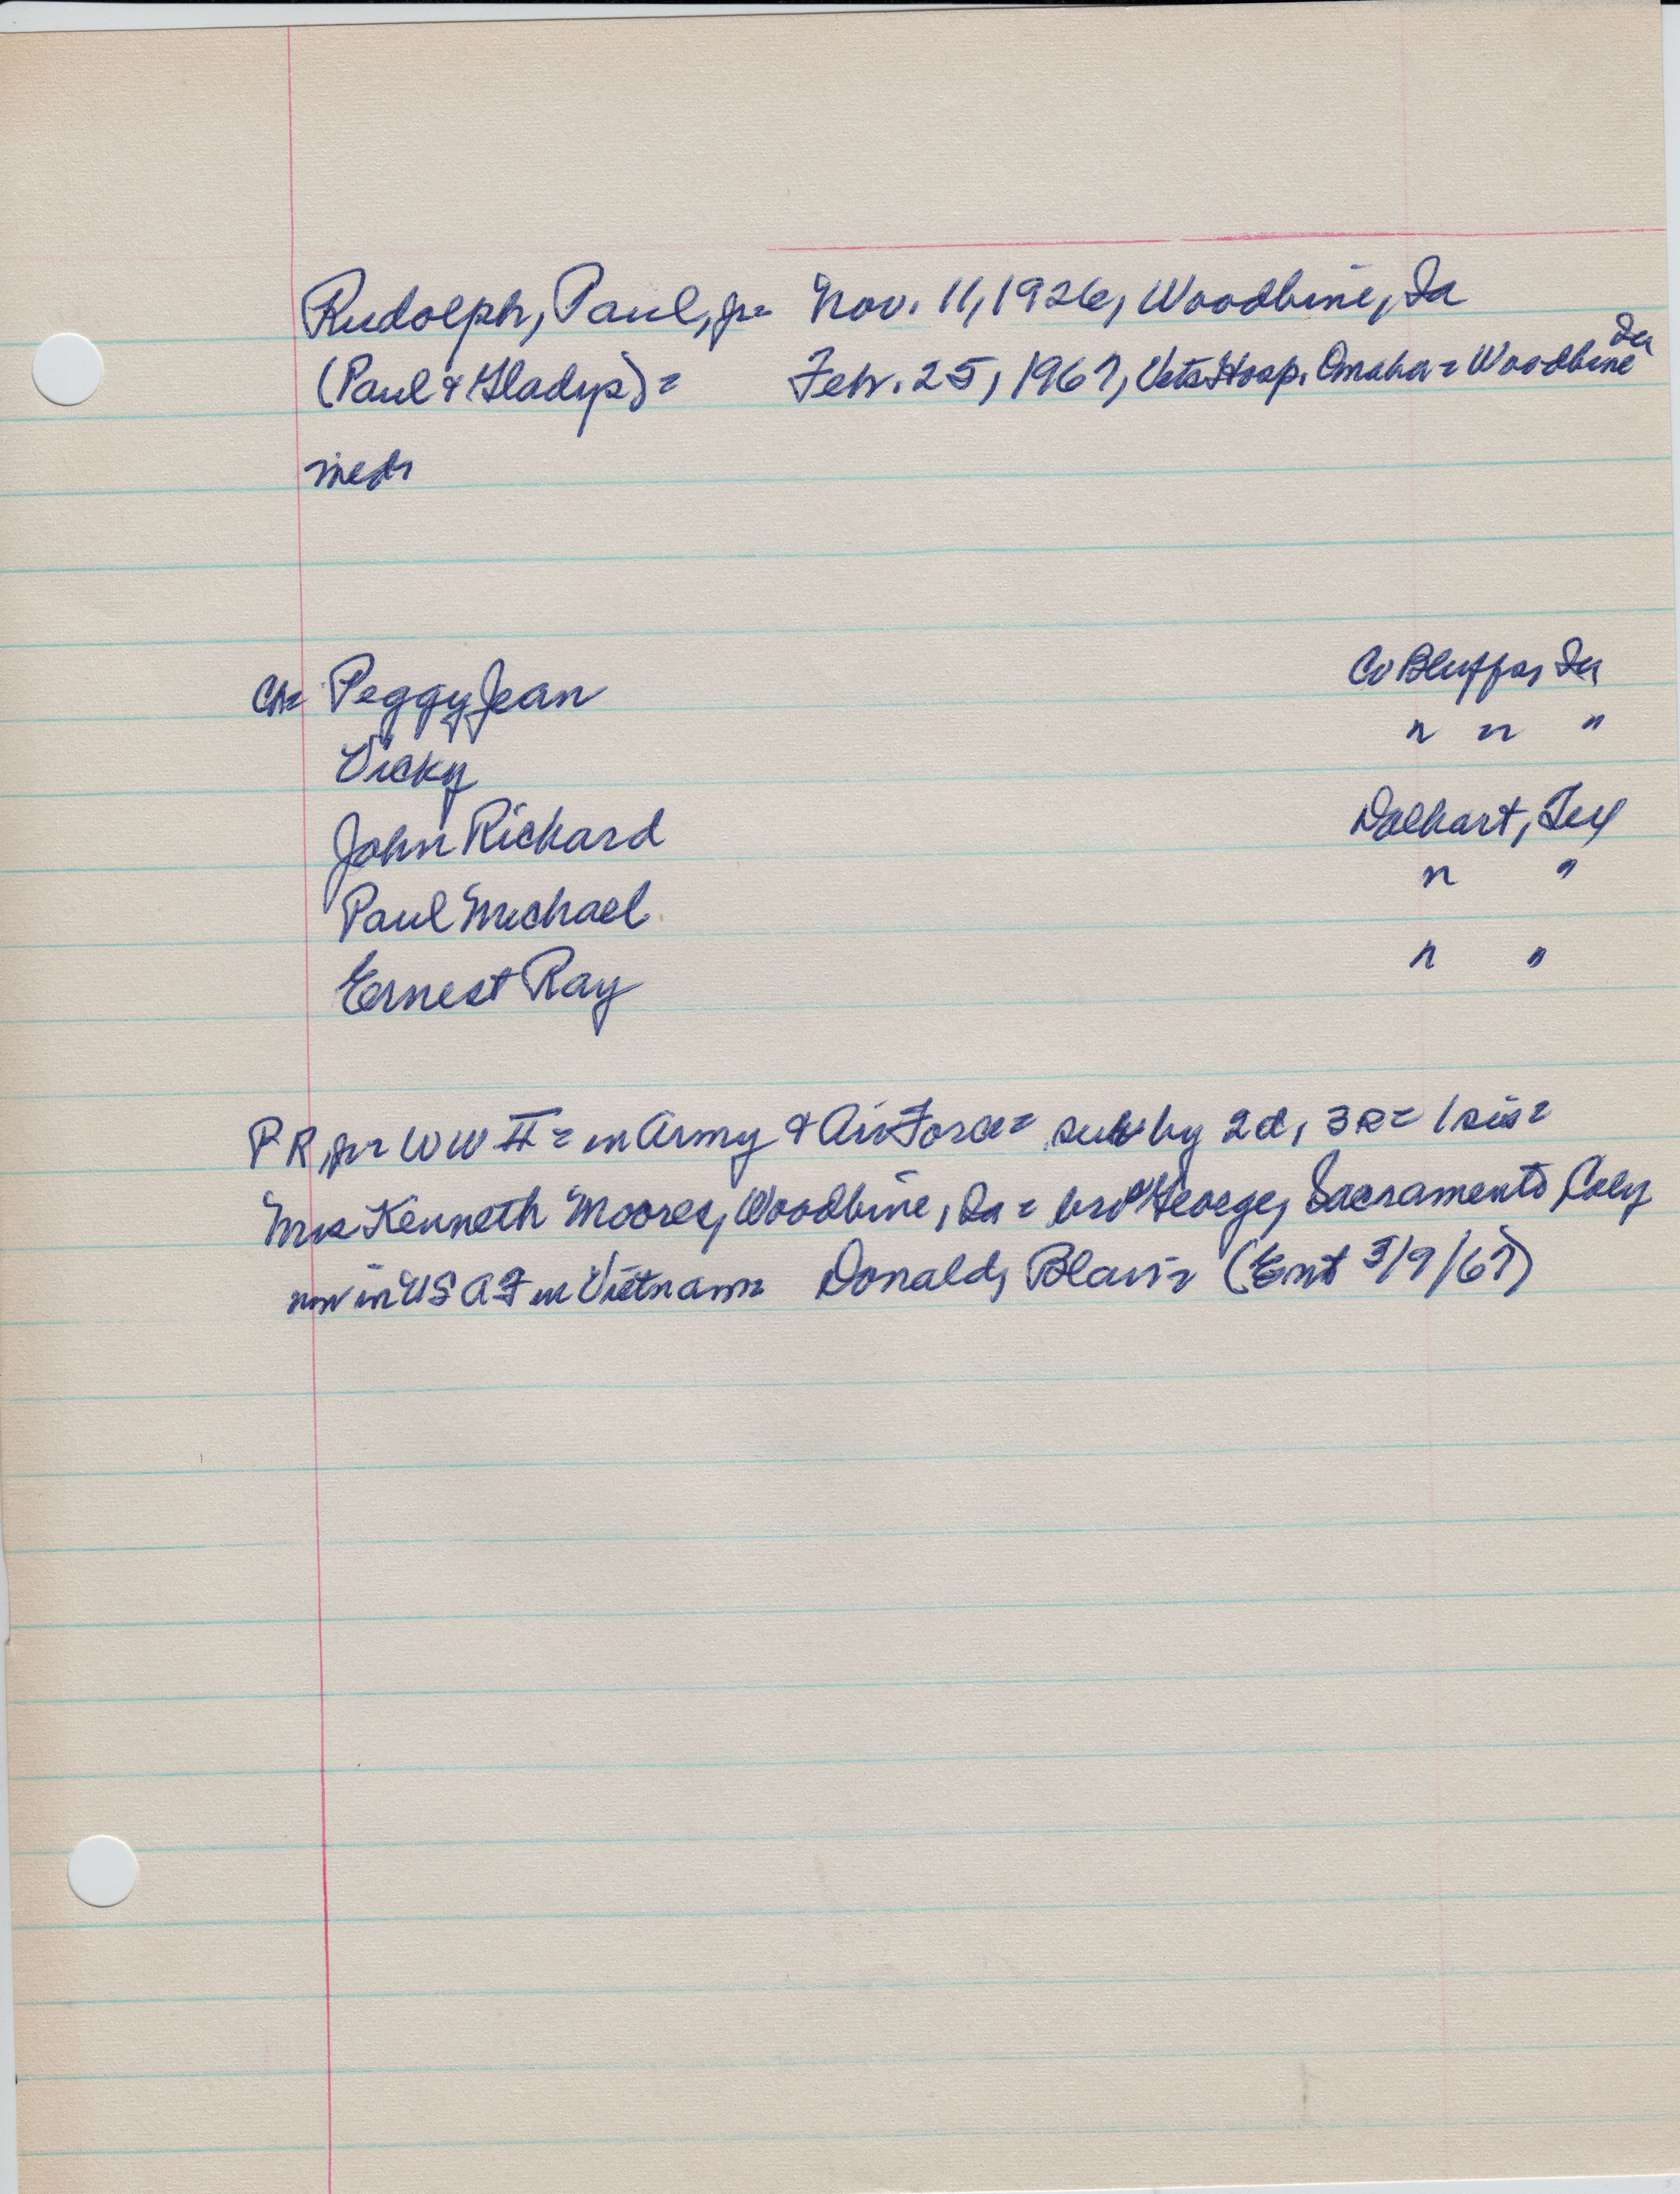 Rudolph, Paul, Jr= Nov. 11, 1926, Woodbine, Ia
(Paul & Gladys)= Feb. 25, 1967, Vets Hosp. Omaha= Woodbine Ia
med
Ch= Peggy Jean Co Bluffs, Ia
Vicky " " "
John Richard Dalhart, Tex
Paul Michael " "
Ernest Ray " "
PR, Jr= WW II= in Army & Air Force= sur by 2d, 3s= 1 sis=
Mrs Kenneth Moores, Woodbine, Ia= bro George, Sacramento, Calif
now in USAF in Vietnam= Donald, Blair= (Ent 3/9/67)